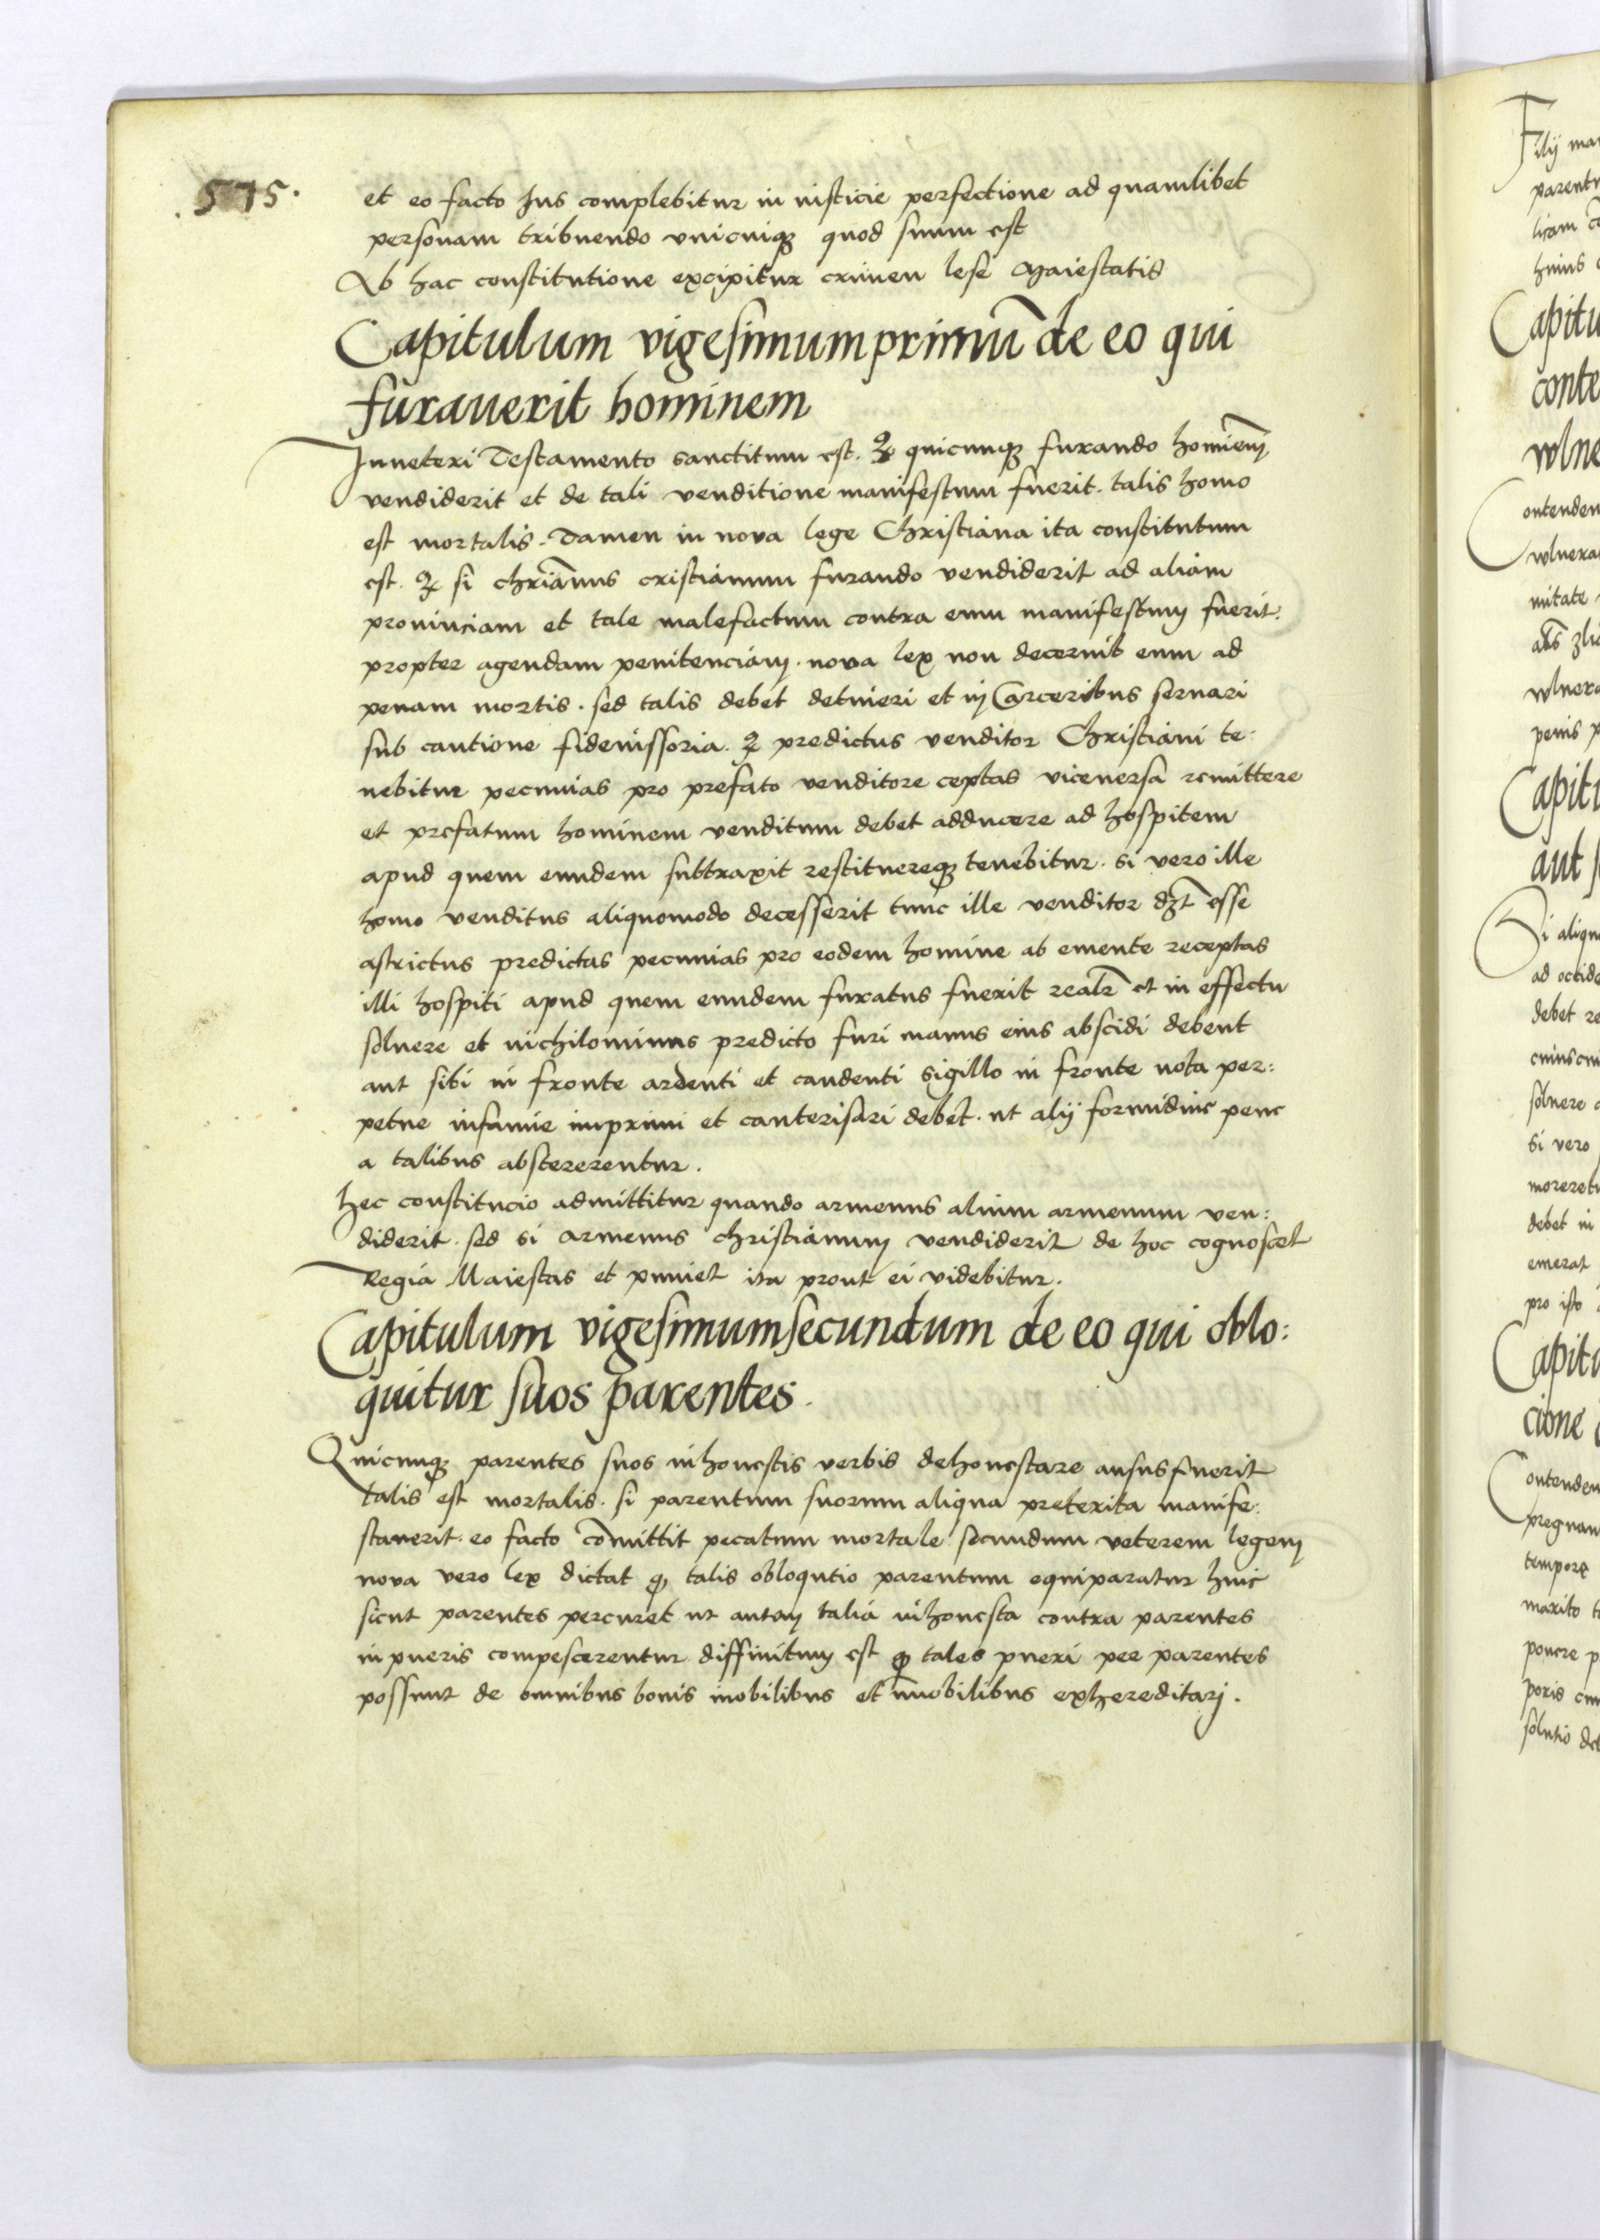 .575.
et eo facto Jus complebitur in iusticie perfectione ad quamlibet
personam tribuendo vnicuiqꝫ quod suum est
Ab hac constitutione excipitur crimen lese Maiestatis
Capitulum vigesimumprimū de eo qui
furauerit hominem
Inueteri Testamento sanctitum est. Ꝙ quicunqꝫ furando homīem
vendiderit et de tali venditione manifestum fuerit. talis homo
est mortalis. Tamen in nova lege Christiana ita constitutum
est. Ꝙ si chrīanus cristianum furando vendiderit ad aliam
prouinciam et tale malefactum contra eum manifestum fuerit.
propter agendam penitenciam. nova lex non decernit eum ad
penam mortis. sed talis debet detineri et in Carceribus seruari
sub cautione fideiussoria. ꝙ predictus venditor Christiani te:
nebitur pecunias pro prefato venditore ceptas viceuersa remittere
et prefatum hominem venditum debet adducere ad hospitem
apud quem eundem subtraxit restituereqꝫ tenebitur. si vero ille
homo venditus aliquomodo decesserit tunc ille venditor dꝫt esse
astrictus predictas pecunias pro eodem homine ab emente receptas
illi hospiti apud quem eundem furatus fuerit realr̄ et in effectu
soluere et nichilominus predicto furi manus eius abscidi debent
aut sibi in fronte ardenti et candenti sigillo in fronte nota per:
petue infamie imprimi et cauterisari debet. ut alij formidine pene
a talibus abstererentur.
hec constitucio admittitur quando armenus alium armenum ven:
diderit. sed si armenus christianum vendiderit de hoc cognoscet
Regia Maiestas et puniet ita prout ei videbitur.
Capitulum vigesimumsecundum de eo qui oblo:
quitur suos parentes.
Quicunqꝫ parentes suos inhonestis verbis dehonestare ausus fuerit
talis est mortalis. si parentum suorum aliqua preterita manife:
stauerit. eo facto cōmittit pecatum mortale secundum veterem legem
nova vero lex dictat ꝙ talis obloqutio parentum equiparatur huic
sicut parentes percuret ut autem talia inhonesta contra parentes
in pueris compescerentur diffinitum est ꝙ tales pueri per parentes
possunt de omnibus bonis mobilibus et īmobilibus exhereditari.
Filij
Capitu
conte
wlne
Contenden
wlnera
mitate
wlnera
penis
Capitu
aut
Si aliqu
ad occide
debet
soluere
si vero
moreretu
debet in
emerat
pro isto
Capitu
cione
Contenden
pregnan
tempore
marito
ponere
poris
solutio